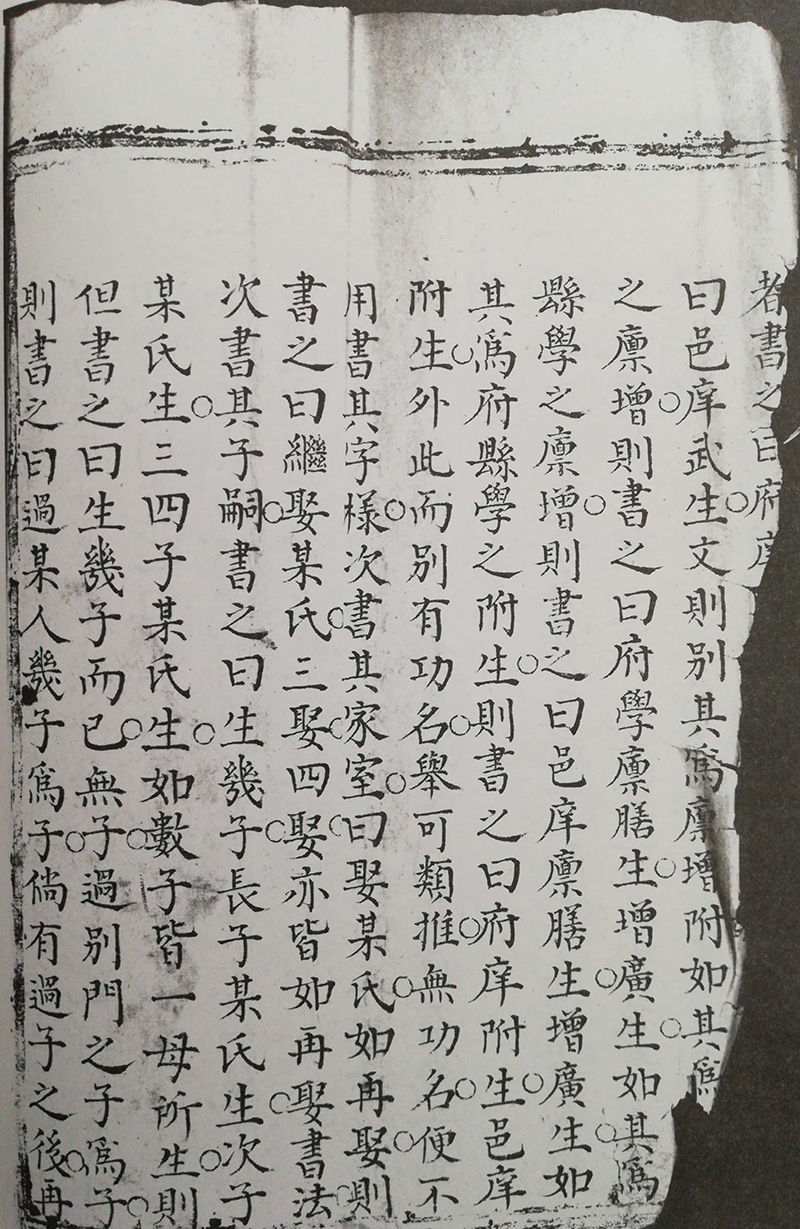 者書之曰府庠
曰邑庠武生○文則別其爲廩增附如其爲
之廩增○則書之曰府學廩膳生○增廣生○如其爲
縣學之廩增○則書之曰邑庠廩膳生○增廣生○如
其爲府縣學之附生○則書之曰府庠附生○邑庠
附生○外此而別有功名○舉可類推○無功名○便不
用書其字樣○次書其家室○曰娶某氏○如再娶○則
書之曰繼娶某氏○三娶○四娶○亦皆如再娶書法○
次書其子嗣○書之曰生幾子○長子某氏生○次子
某氏生○三四子某氏生○如數子皆一母所生○則
但書之曰生幾子而已○無子○過別門之子爲子○
則書之曰過某人幾子爲子○倘有過子之後○再